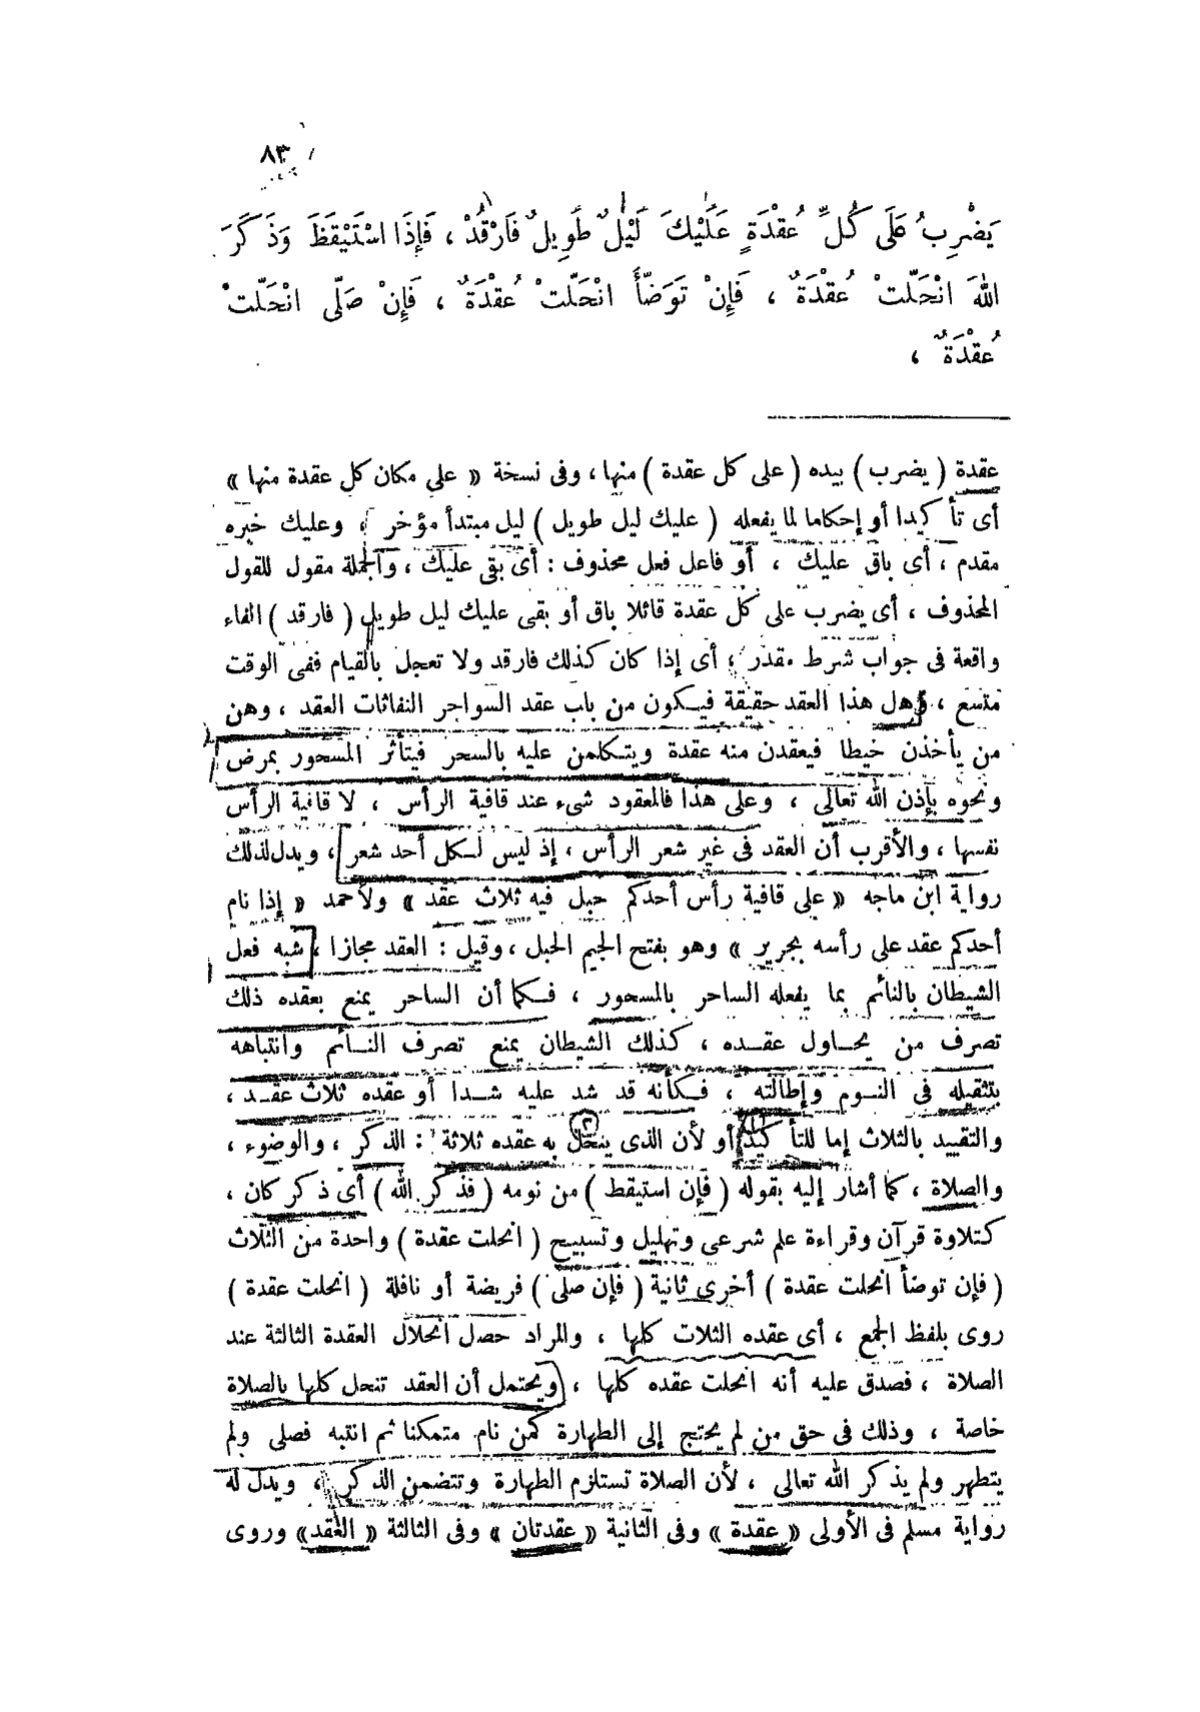 ٨٣
يَضْرِبُ عَلَى كُلِّ عُقْدَةٍ عَلَيْكَ لَيْلٌ طَوِيلٌ فَارْقُدْ ، فَإِذَا اسْتَيْقَظَ وَذَكَرَ
اللهَ انْحَلّتْ عُقْدَةٌ ، فَإِنْ تَوَضّأَ انْحَلّتْ عُقْدَةٌ ، فَإِنْ صَلّى انْحَلّتْ
عُقْدَةٌ ،
عقدة ( يضرب ) بيده ( على كل عقدة ) منها ، وفى نسخة « على مكان كل عقدة منها »
أى تأكيدا أو إحكاما لما يفعله ( عليك ليل طويل ) ليل مبتدأ مؤخر ، وعليك خبره
مقدم ، أى باق عليك ، أو فاعل فعل محذوف : أى بقى عليك ، والجملة مقول للقول
المحذوف ، أى يضرب على كل عقدة قائلا باق أو بقى عليك ليل طويل ( فارقد ) الفاء
واقعة فى جواب شرط مقدر ، أى إذا كان كذلك فارقد ولا تعجل بالقيام ففى الوقت
متسع ، وهل هذا العقد حقيقة فيكون من باب عقد السواحر النفاثات العقد ، وهن
من يأخذن خيطا فيعقدن منه عقدة ويتكلمن عليه بالسحر فيتأثر المسحور بمرض
ونحوه بإذن الله تعالى ، وعلى هذا فالمعقود شىء عند قافية الرأس ، لا قافية الرأس
نفسها ، والأقرب أن العقد فى غير شعر الرأس ، إذ ليس لكل أحد شعر ، ويدل لذلك
رواية ابن ماجه « على قافية رأس أحدكم حبل فيه ثلاث عقد » ولأحمد « إذا نام
أحدكم عقد على رأسه بجرير » وهو بفتح الجيم الحبل ، وقيل : العقد مجازا ، شبه فعل
الشيطان بالنائم بما يفعله الساحر بالمسحور ، فكما أن الساحر يمنع بعقده ذلك
تصرف من يحاول عقده ، كذلك الشيطان يمنع تصرف النائم وانتباهه
بتثقيله فى النوم وإطالته ، فكأنه قد شد عليه شدا أو عقده ثلاث عقد ،
والتقييد بالثلاث إما للتأكيد أو لأن الذى ينحل به عقده ثلاثة : الذكر ، والوضوء ،
والصلاة ، كما أشار إليه بقوله ( فإن استيقظ ) من نومه ( فذكر الله ) أى ذكر كان ،
كتلاوة قرآن وقراءة علم شرعى وتهليل وتسبيح ( انحلت عقدة ) واحدة من الثلاث
( فإن توضأ انحلت عقدة ) أخرى ثانية ( فإن صلى ) فريضة أو نافلة ( انحلت عقدة )
روى بلفظ الجمع ، أى عقده الثلاث كلها ، والمراد حصل انحلال العقدة الثالثة عند
الصلاة ، فصدق عليه أنه انحلت عقده كلها ، ويحتمل أن العقد تنحل كلها بالصلاة
خاصة ، وذلك فى حق من لم يحتج إلى الطهارة كمن نام متمكنا ثم انتبه فصلى ولم
يتطهر ولم يذكر الله تعالى ، لأن الصلاة تستلزم الطهارة وتتضمن الذكر ، ويدل له
رواية مسلم فى الأولى « عقدة » وفى الثانية « عقدتان » وفى الثالثة « العقد » وروى